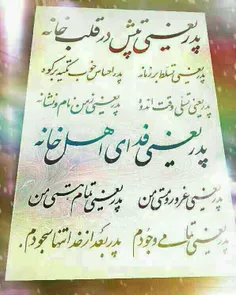 پدر یعنی تپش در قلب خانه
پدر یعنی تسلط بر زمانه پدر احساس خوب تکیه بر کوه
پدر یعنی تسلی وقت اندوه پدر یعنی ز من نام و نشانه
پدر یعنی فدای اهل خانه
پدر یعنی غرور و مستی من پدر یعنی تمام هستی من
پدر یعنی تمامی وجودم پدر بعد از خدا تنها سجودم